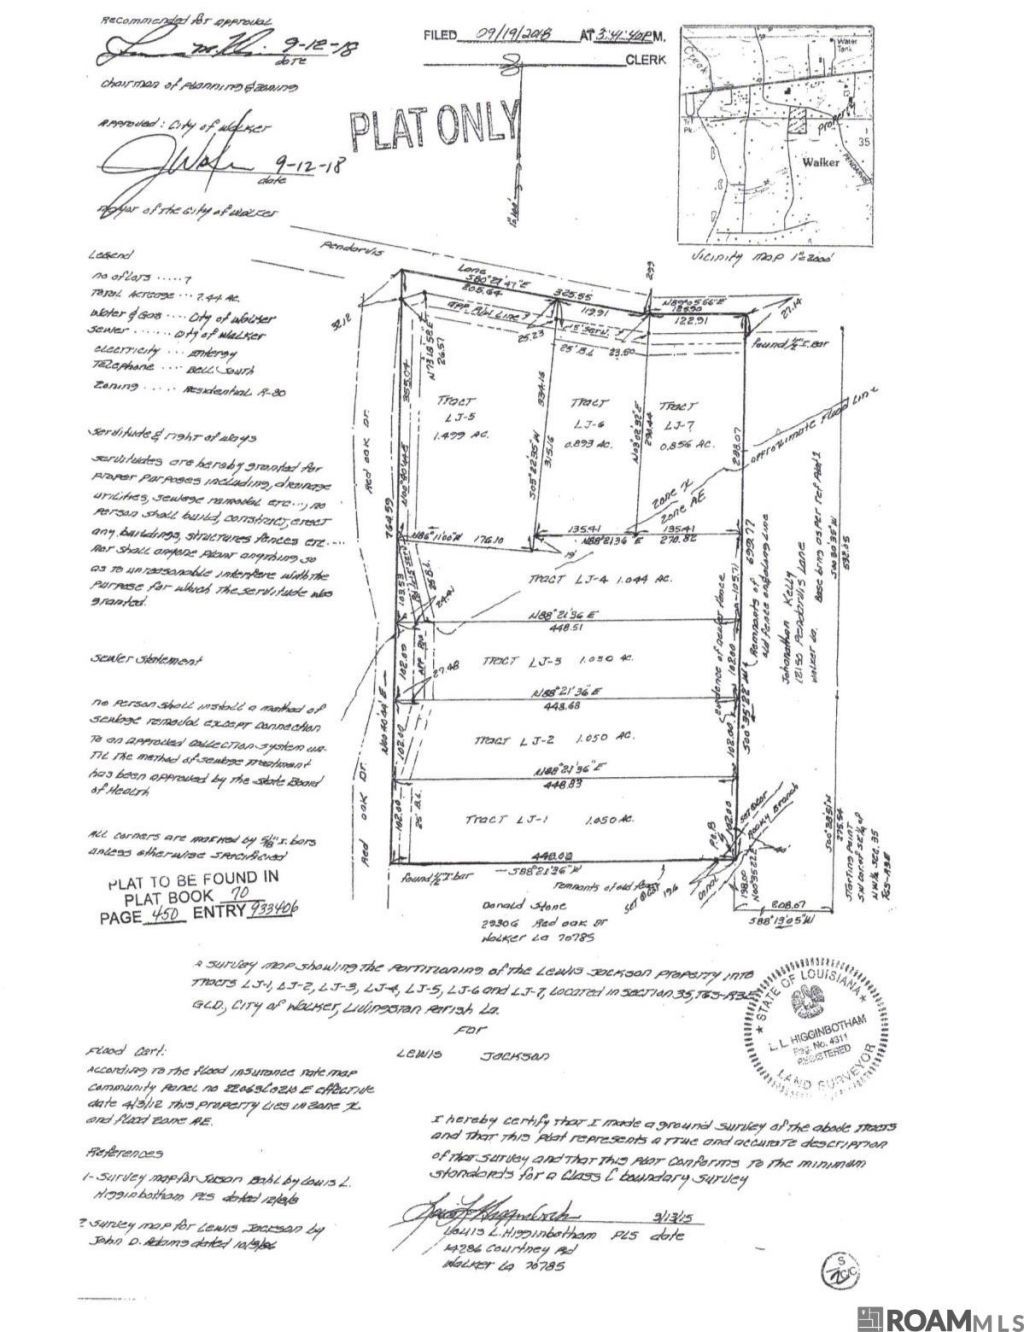 Recommended for approval
9-12-18
date
Chairman of Planning & Zoning
Approved: City of Walker
9-12-18
date
Mayor of the City of Walker
FILED 09/19/2018 AT 3:41:40P M.
CLERK
PLAT ONLY
Creek
Water Tank
Property
Walker
35
Vicinity Map 1"=2000'
Legend
No of Lots ..... 7
Total Acreage ... 7.44 AC.
Water & Gas .... City of Walker
Sewer ..... City of Walker
Electricity ... Entergy
Telephone .... Bell South
Zoning ..... Residential R-80
Servitude & Right of Ways
Servitudes are hereby granted for
proper purposes including, drainage
utilities, sewage removal etc..., no
person shall build, construct, erect
any buildings, structures fences etc....
nor shall anyone plant anything so
as to unreasonable interfere with the
purpose for which the servitude was
granted.
Sewer Statement
No person shall install a method of
sewage removal except connection
to an approved collection system un-
til the method of sewage treatment
has been approved by the State Board
of Health
All corners are marked by 5/8" I. bars
unless otherwise specified
PLAT TO BE FOUND IN
PLAT BOOK 70
PAGE 450 ENTRY 933406
Pendarvis
Lane
S80°21'47"E
205.64
325.55
119.91
299
N89°05'56"E
122.91
27.14
found 1/2" I. Bar
32.12
25.23
25' B.L.
23.60
26.57
355.04
Red Oak Dr.
TRACT
LJ-5
1.499 AC.
TRACT
LJ-6
0.893 AC.
TRACT
LJ-7
0.856 AC.
334.16
315.16
S05°22'35"W
N03°02'32"E
290.44
288.07
approximate flood line
Zone X
Zone AE
764.59
N86°11'00"W 176.10
19'
135.41
135.41
N88°21'36"E 270.82
TRACT LJ-4 1.044 AC.
103.53
105.71
24.41
N88°21'36"E
448.51
TRACT LJ-3 1.050 AC.
102.00
102.00
27.48
N88°21'36"E
448.68
TRACT LJ-2 1.050 AC.
N00°40'44"E
102.00
102.00
N88°21'36"E
448.83
TRACT LJ-1 1.050 AC.
102.00
25' B.L.
102.00
Red Oak Dr.
S00°35'22"W
699.77
Remnants of
old fence
evidence of newer fence
Johnathan Kelly
12150 Pendarvis Lane
Walker La.
Base brng as per Ref And 1
S00°30'35"W
P.O.B.
Rocky Branch
Canal
found 1/2" I. bar
S88°21'36"W
remnants of old fence
198.00
N00°35'22"E
S00°38'51"W
275.54
Starting Point
S.W. cor. of SE 1/4 of
N.W. 1/4 Sec. 35
T6S-R3E
808.67
S88°19'05"W
Donald Stone
29306 Red Oak Dr
Walker La 70785
A survey map showing the partitioning of the Lewis Jackson Property into
Tracts LJ-1, LJ-2, LJ-3, LJ-4, LJ-5, LJ-6 and LJ-7, located in Section 35, T6S-R3E
GLD, City of Walker, Livingston Parish La.
for
Lewis Jackson
STATE OF LOUISIANA
L. L. HIGGINBOTHAM
Reg. No. 4311
REGISTERED
LAND SURVEYOR
Flood Cert:
According to the flood insurance rate map
community panel no 22063C0210 E effective
date 4/3/12 this property lies in zone X
and flood zone AE.
References
1- Survey map for Jason Bahl by Louis L.
Higginbotham PLS dated 12/8/8
2 Survey map for Lewis Jackson by
John D. Adams dated 10/3/86
I hereby certify that I made a ground survey of the above tracts
and that this plat represents a true and accurate description
of that survey and that this plat conforms to the minimum
standards for a Class C boundary survey
3/13/15
Louis L. Higginbotham PLS date
14286 Courtney Rd
Walker La 70785
S
2CC
ROAM MLS